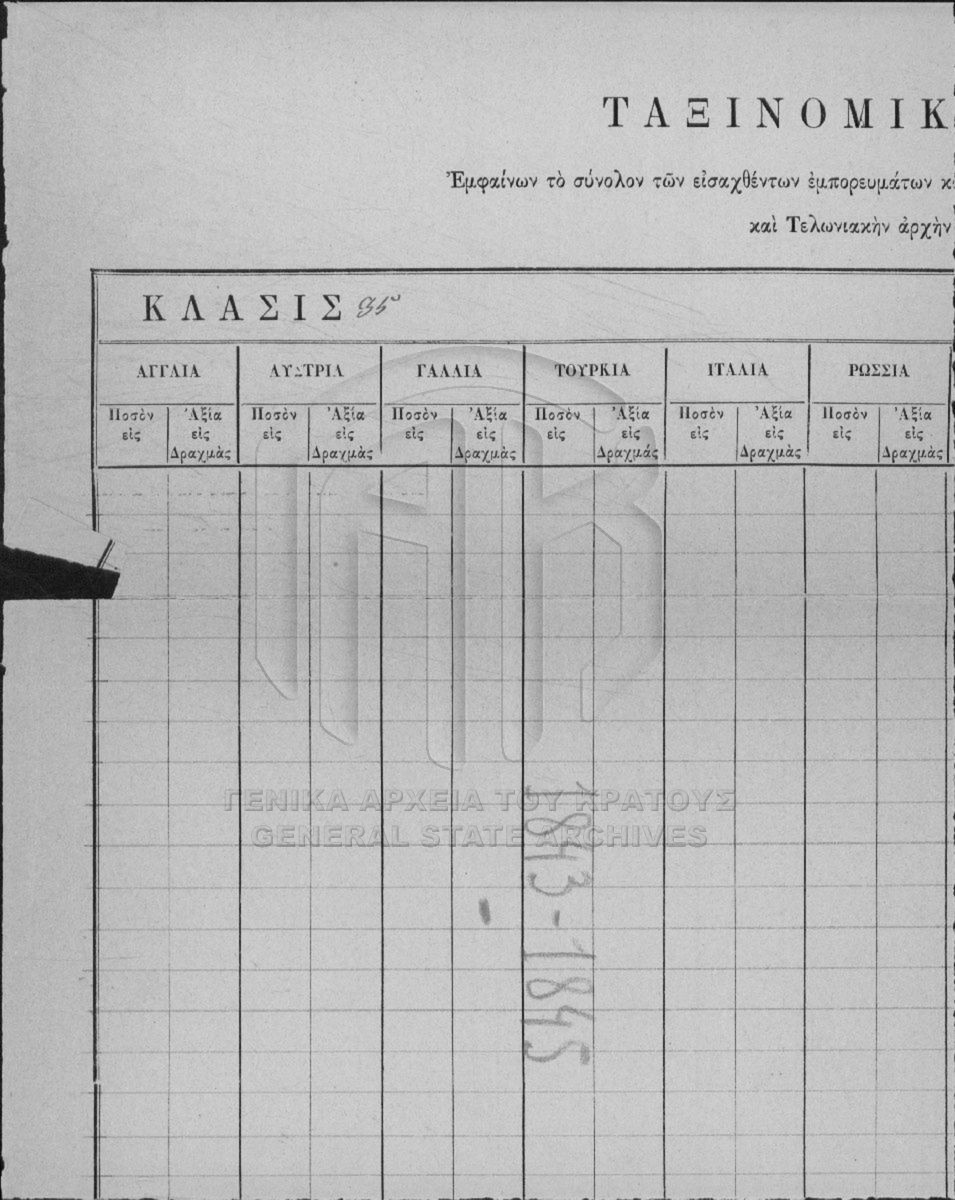 ΤΑΞΙΝΟΜΙΚ
Ἐμφαίνων τὸ σύνολον τῶν εἰσαχθέντων ἐμπορευμάτων κ
καὶ Τελωνιακὴν ἀρχὴν
ΚΛΑΣΙΣ 35
ΑΓΓΛΙΑ ΑΥΣΤΡΙΑ ΓΑΛΛΙΑ ΤΟΥΡΚΙΑ ΙΤΑΛΙΑ ΡΩΣΣΙΑ
Ποσὸν Ἀξία Ποσὸν Ἀξία Ποσὸν Ἀξία Ποσὸν Ἀξία Ποσὸν Ἀξία Ποσὸν Ἀξία
εἰς εἰς εἰς εἰς εἰς εἰς εἰς εἰς εἰς εἰς εἰς εἰς
Δραχμὰς Δραχμὰς Δραχμὰς Δραχμάς Δραχμὰς Δραχμὰς
ΓΕΝΙΚΑ ΑΡΧΕΙΑ ΤΟΥ ΚΡΑΤΟΥΣ
GENERAL STATE ARCHIVES
1843-1845